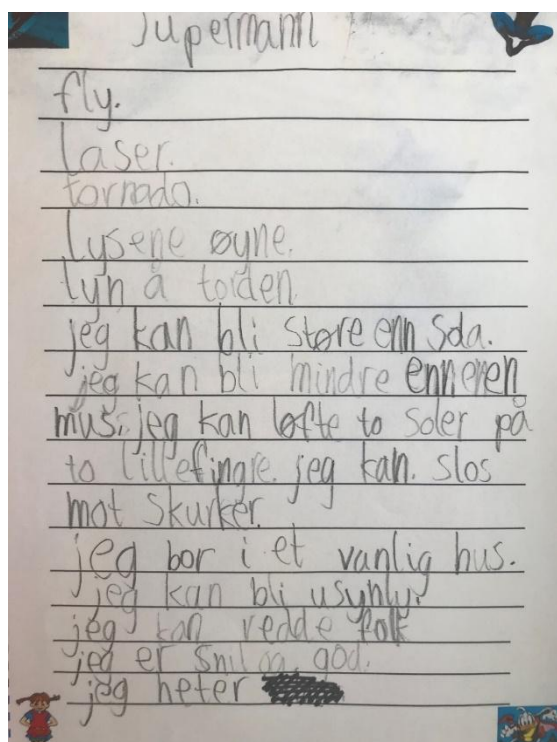 Supermann
fly.
laser.
tornado.
lysene øyne.
lyn å torden
jeg kan bli støre enn sola.
jeg kan bli mindre enn en
mus. jeg kan løfte to soler på
to lillefingre. jeg kan. slos
mot skurker.
jeg bor i et vanlig hus.
jeg kan bli usynlig.
jeg kan redde folk
jeg er snil og god.
jeg heter